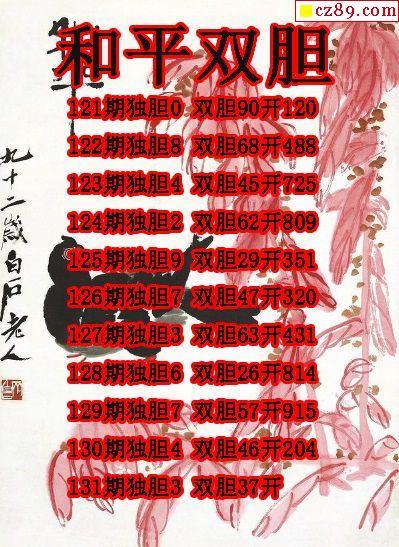 cz89.com
和平双胆
121期独胆0 双胆90开120
122期独胆8 双胆68开488
123期独胆4 双胆45开725
124期独胆2 双胆62开809
125期独胆9 双胆29开351
126期独胆7 双胆47开320
127期独胆3 双胆63开431
128期独胆6 双胆26开814
129期独胆7 双胆57开915
130期独胆4 双胆46开204
131期独胆3 双胆37开
九十二岁白石老人